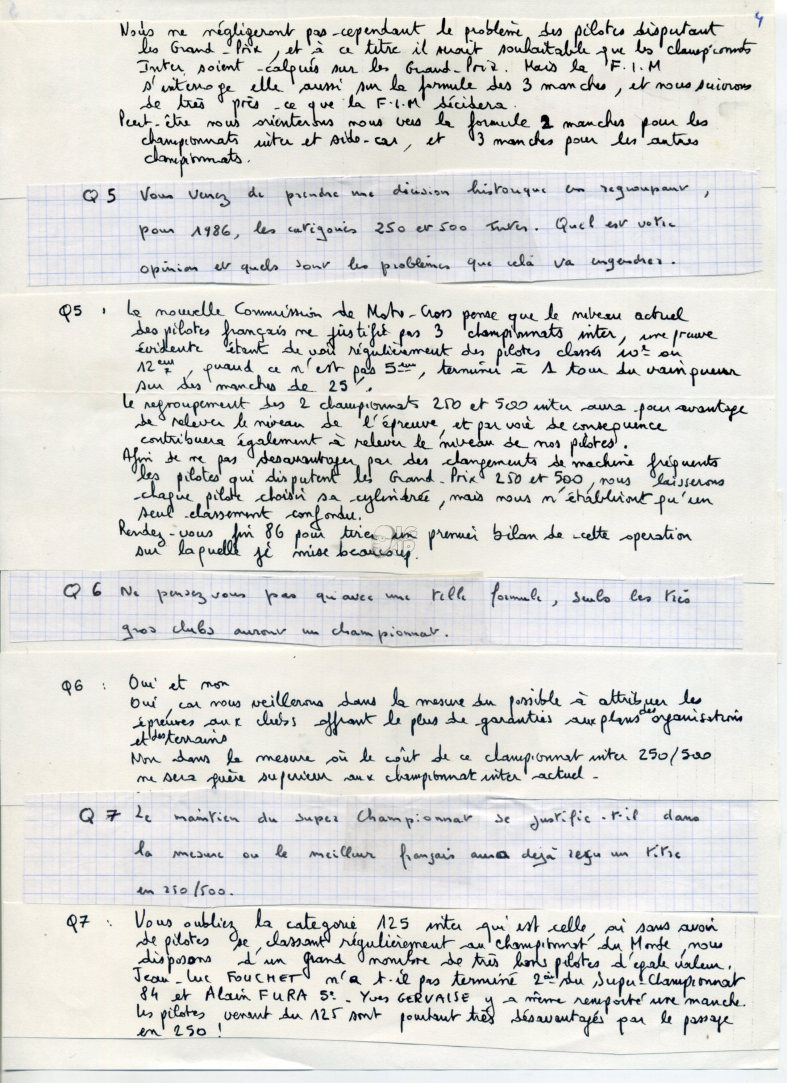 4
Nous ne négligeront pas cependant le problème des pilotes disputant
les Grand-Prix, et à ce titre il serait souhaitable que les championnats
Inter soient calqués sur les Grand-Prix. Mais la F.I.M
s'interroge elle aussi sur la formule des 3 manches, et nous suivrons
de très près ce que la F.I.M décidera.
Peut-être nous orienterons nous vers la formule 2 manches pour les
championnats inter et side-car, et 3 manches pour les autres
championnats.
Q5 Vous venez de prendre une décision historique en regroupant,
pour 1986, les catégories 250 et 500 Inter. Quel est votre
opinion et quels sont les problèmes que celà va engendrer.
Q5 : La nouvelle Commission de Moto-Cross pense que le niveau actuel
des pilotes français ne justifie pas 3 championnats inter, une preuve
évidente étant de voir régulièrement des pilotes classés 10e ou
12ème, quand ce n'est pas 5ème, terminer à 1 tour du vainqueur
sur des manches de 25'.
Le regroupement des 2 championnats 250 et 500 inter aura pour avantage
de relever le niveau de l'épreuve, et par voie de conséquence
contribuera également à relever le niveau de nos pilotes.
Afin de ne pas désavantager par des changements de machine fréquents
les pilotes qui disputent les Grand-Prix 250 et 500, nous laisserons
chaque pilote choisir sa cylindrée, mais nous n'établiront qu'un
seul classement confondu.
Rendez-vous fin 86 pour tirer un premier bilan de cette opération
sur laquelle je mise beaucoup.
Q6 Ne pensez vous pas qu'avec une telle formule, seuls les très
gros clubs auront un championnat.
Q6 : Oui et non
Oui, car nous veillerons dans la mesure du possible à attribuer les
épreuves aux clubs offrant le plus de garanties aux plans des organisations
et des terrains
Non dans la mesure où le coût de ce championnat inter 250/500
ne sera guère supérieur aux championnat inter actuel.
Q7 Le maintien du super Championnat se justifie-t-il dans
la mesure ou le meilleur français aura dejà reçu un titre
en 250/500.
Q7 : Vous oubliez la catégorie 125 inter qui est celle, où sans avoir
de pilotes se classant régulièrement au Championnat du Monde, nous
disposons d'un grand nombre de très bons pilotes d'égale valeur.
Jean-Luc FOUCHET n'a t-il pas terminé 2ème du Super-Championnat
84 et Alain FURA 5e. Yves GERVAISE y a même remporté une manche.
Les pilotes venent du 125 sont pourtant très désavantagés par le passage
en 250 !